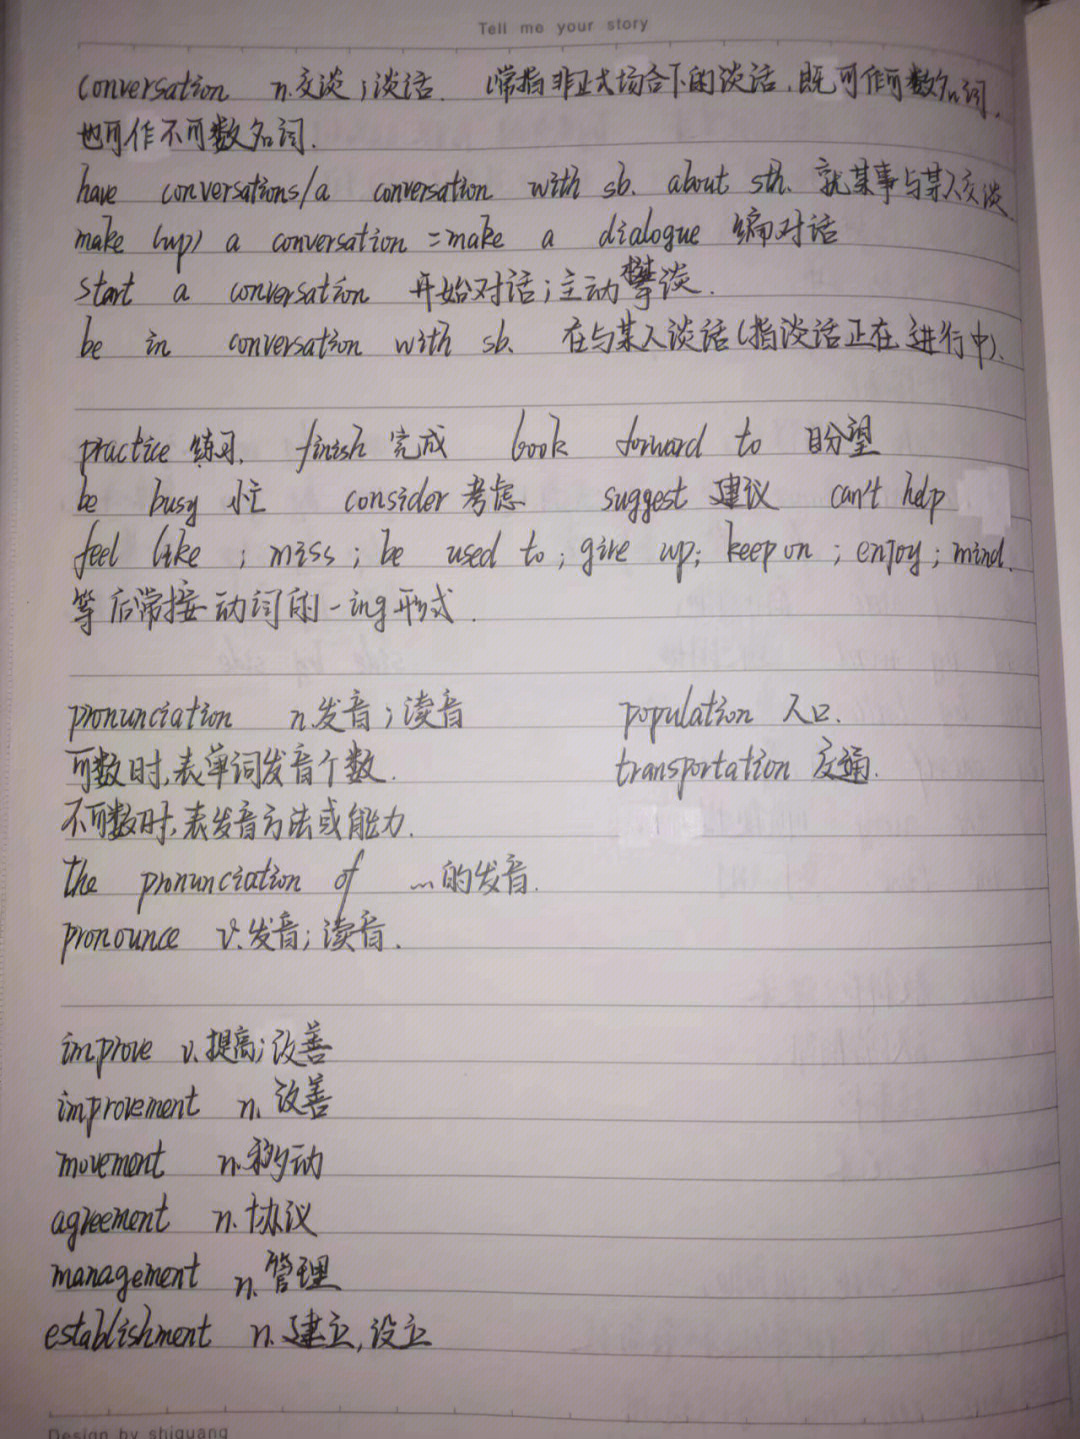 Tell me your story
conversation n.交谈；谈话. (常指非正式场合下的谈话,既可作可数名词,
也可作不可数名词.
have conversations/a conversation with sb. about sth. 就某事与某人交谈
make (up) a conversation = make a dialogue 编对话
start a conversation 开始对话；主动攀谈.
be in conversation with sb. 在与某人谈话(指谈话正在进行中).
practice 练习. finish 完成 look forward to 盼望
be busy 忙 consider 考虑 suggest 建议 can't help
feel like ; miss ; be used to ; give up; keep on ; enjoy ; mind.
等后常接动词的-ing形式.
pronunciation n.发音；读音 population 人口.
可数时,表单词发音个数. transportation 交通.
不可数时,表发音方法或能力.
the pronunciation of ...的发音.
pronounce v.发音；读音.
improve v.提高；改善
improvement n. 改善
movement n.移动
agreement n.协议
management n.管理
establishment n.建立,设立
Design by shiguang